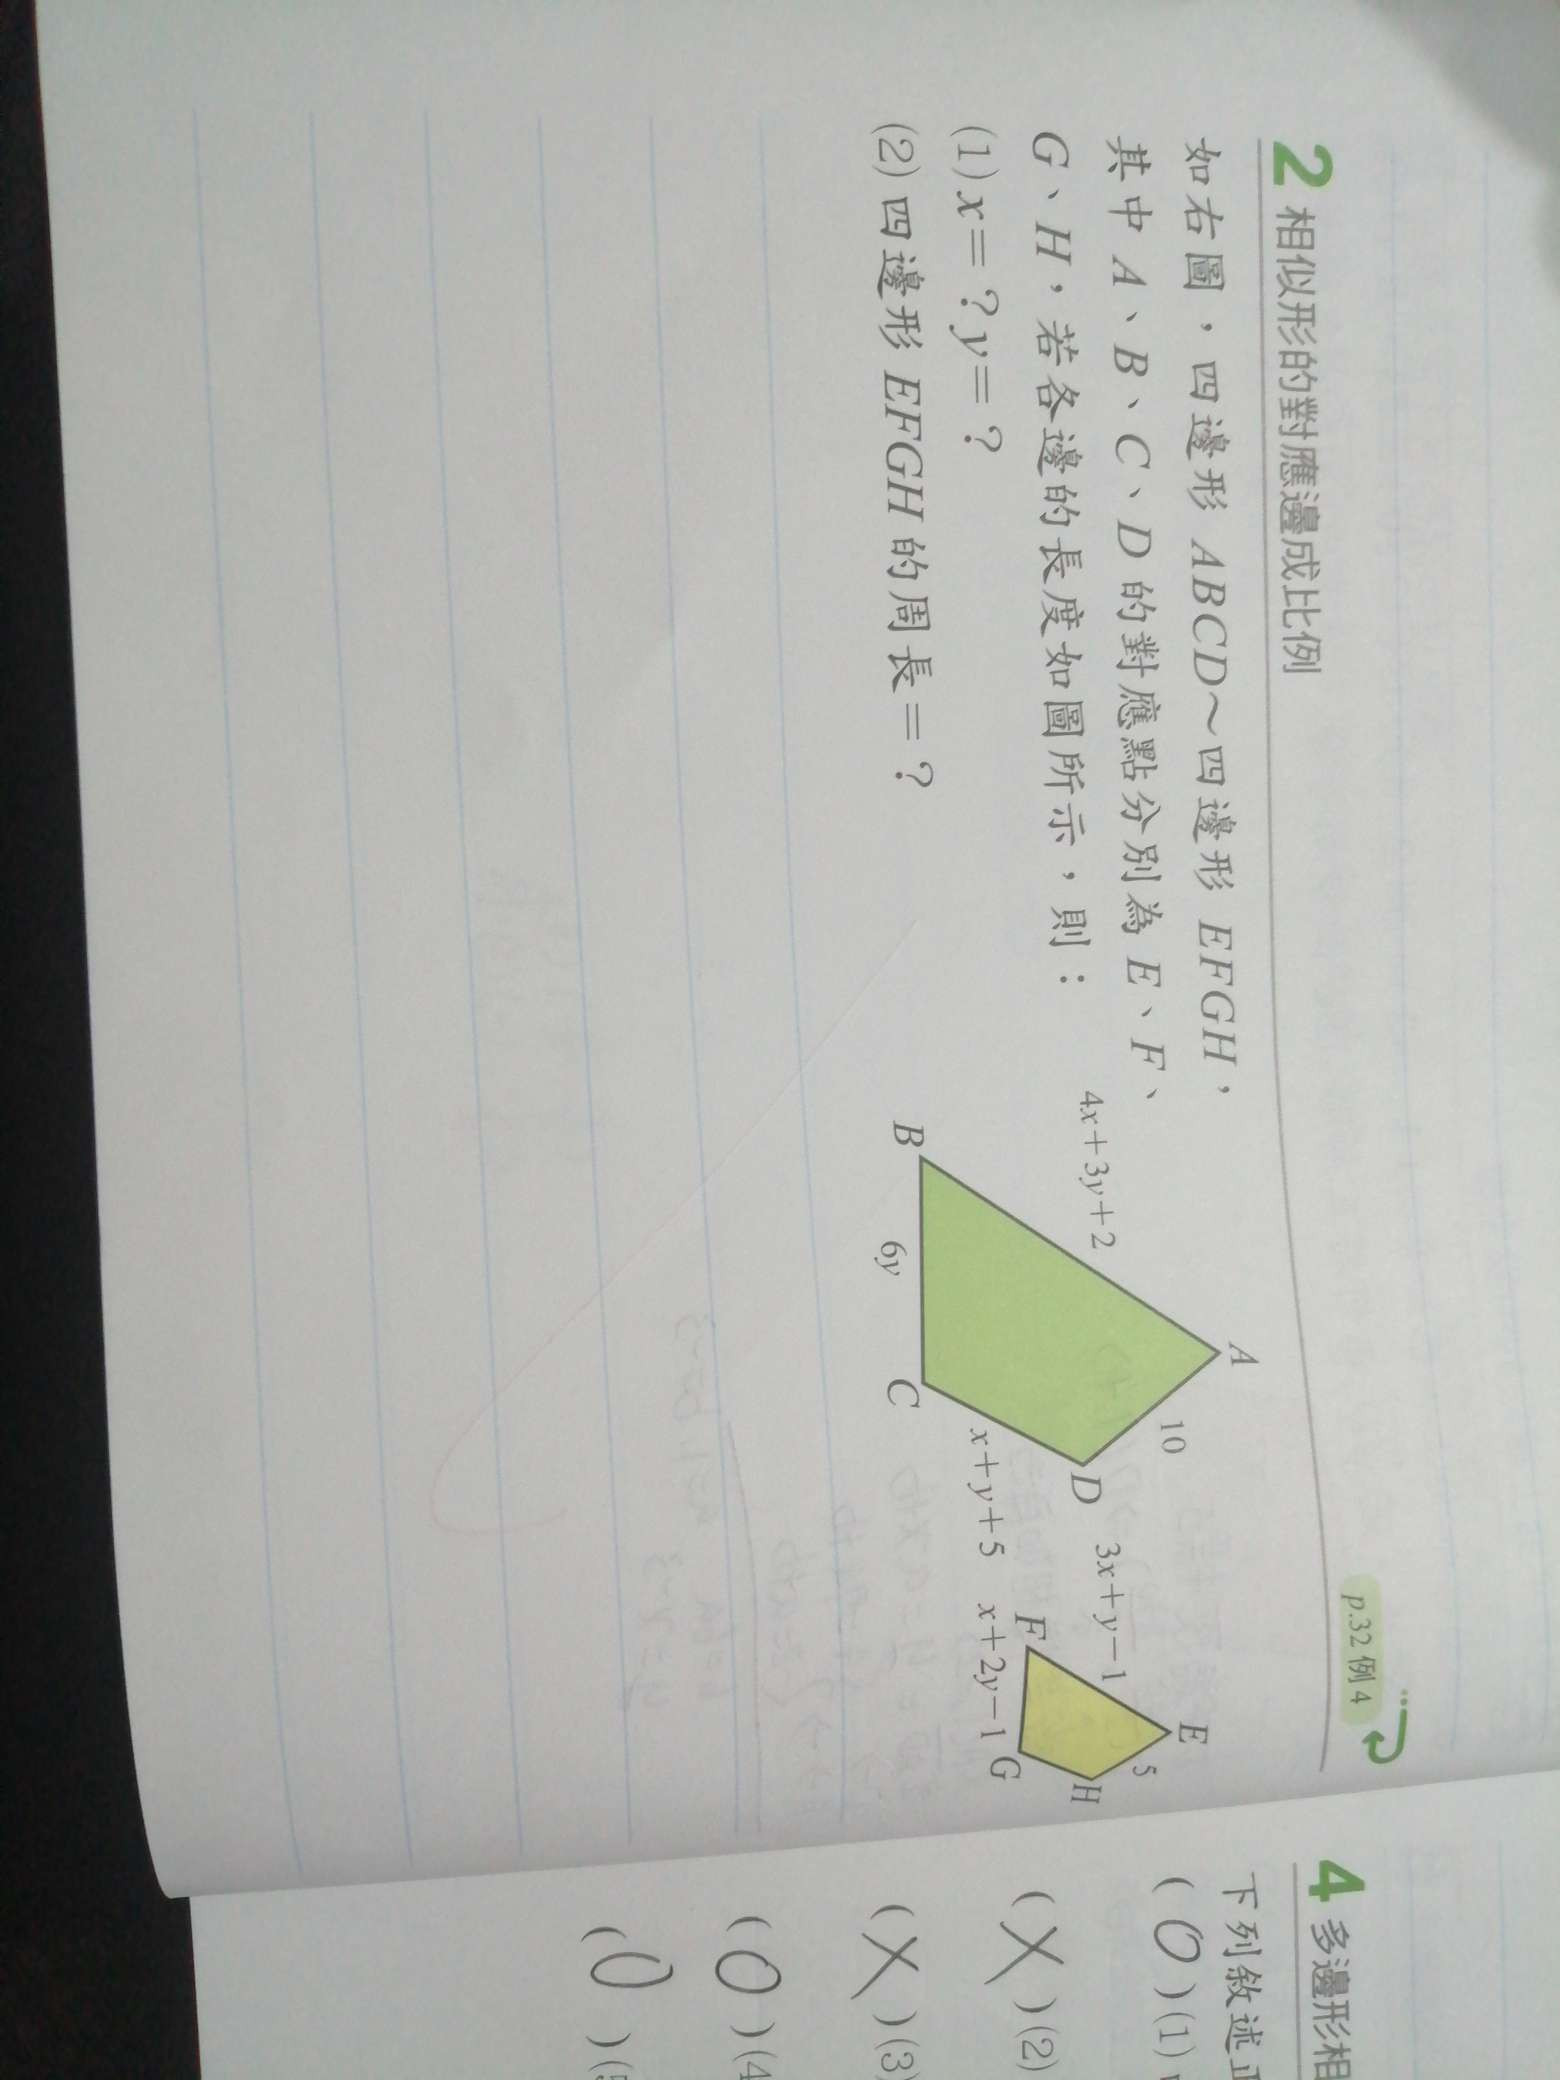 2 相似形的對應邊成比例
p.32 例 4
如右圖，四邊形 ABCD～四邊形 EFGH，
其中 A、B、C、D 的對應點分別為 E、F、
G、H，若各邊的長度如圖所示，則：
(1) x＝？y＝？
(2) 四邊形 EFGH 的周長＝？
A
10
4x＋3y＋2
D
B
6y
C
x＋y＋5
E
5
3x＋y－1
H
F
x＋2y－1
G
4 多邊形相
下列敘述正
( O )(1)
( X )(2)
( X )(3)
( O )(4
( O )(5